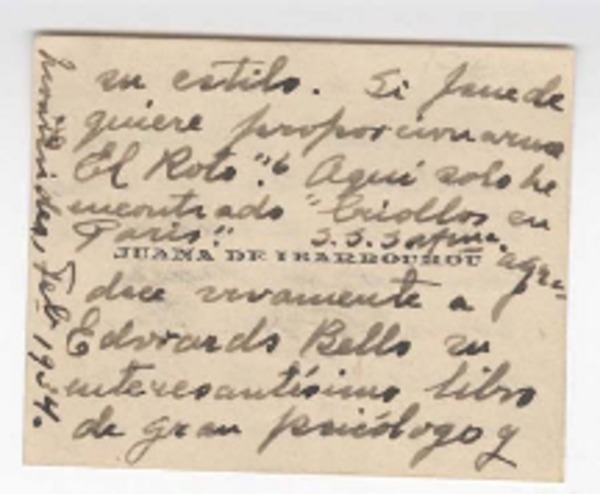 su estilo. Si puede
quiere proporcionarme
El Roto"? Aquí solo he
encontrado "Criollos en
París". S.S.S. afma.
JUANA DE IBARBOUROU
agra=
dece vivamente a
Edwards Bello su
interesantísimo libro
de gran psicólogo y
Montevideo, Feb 1934.